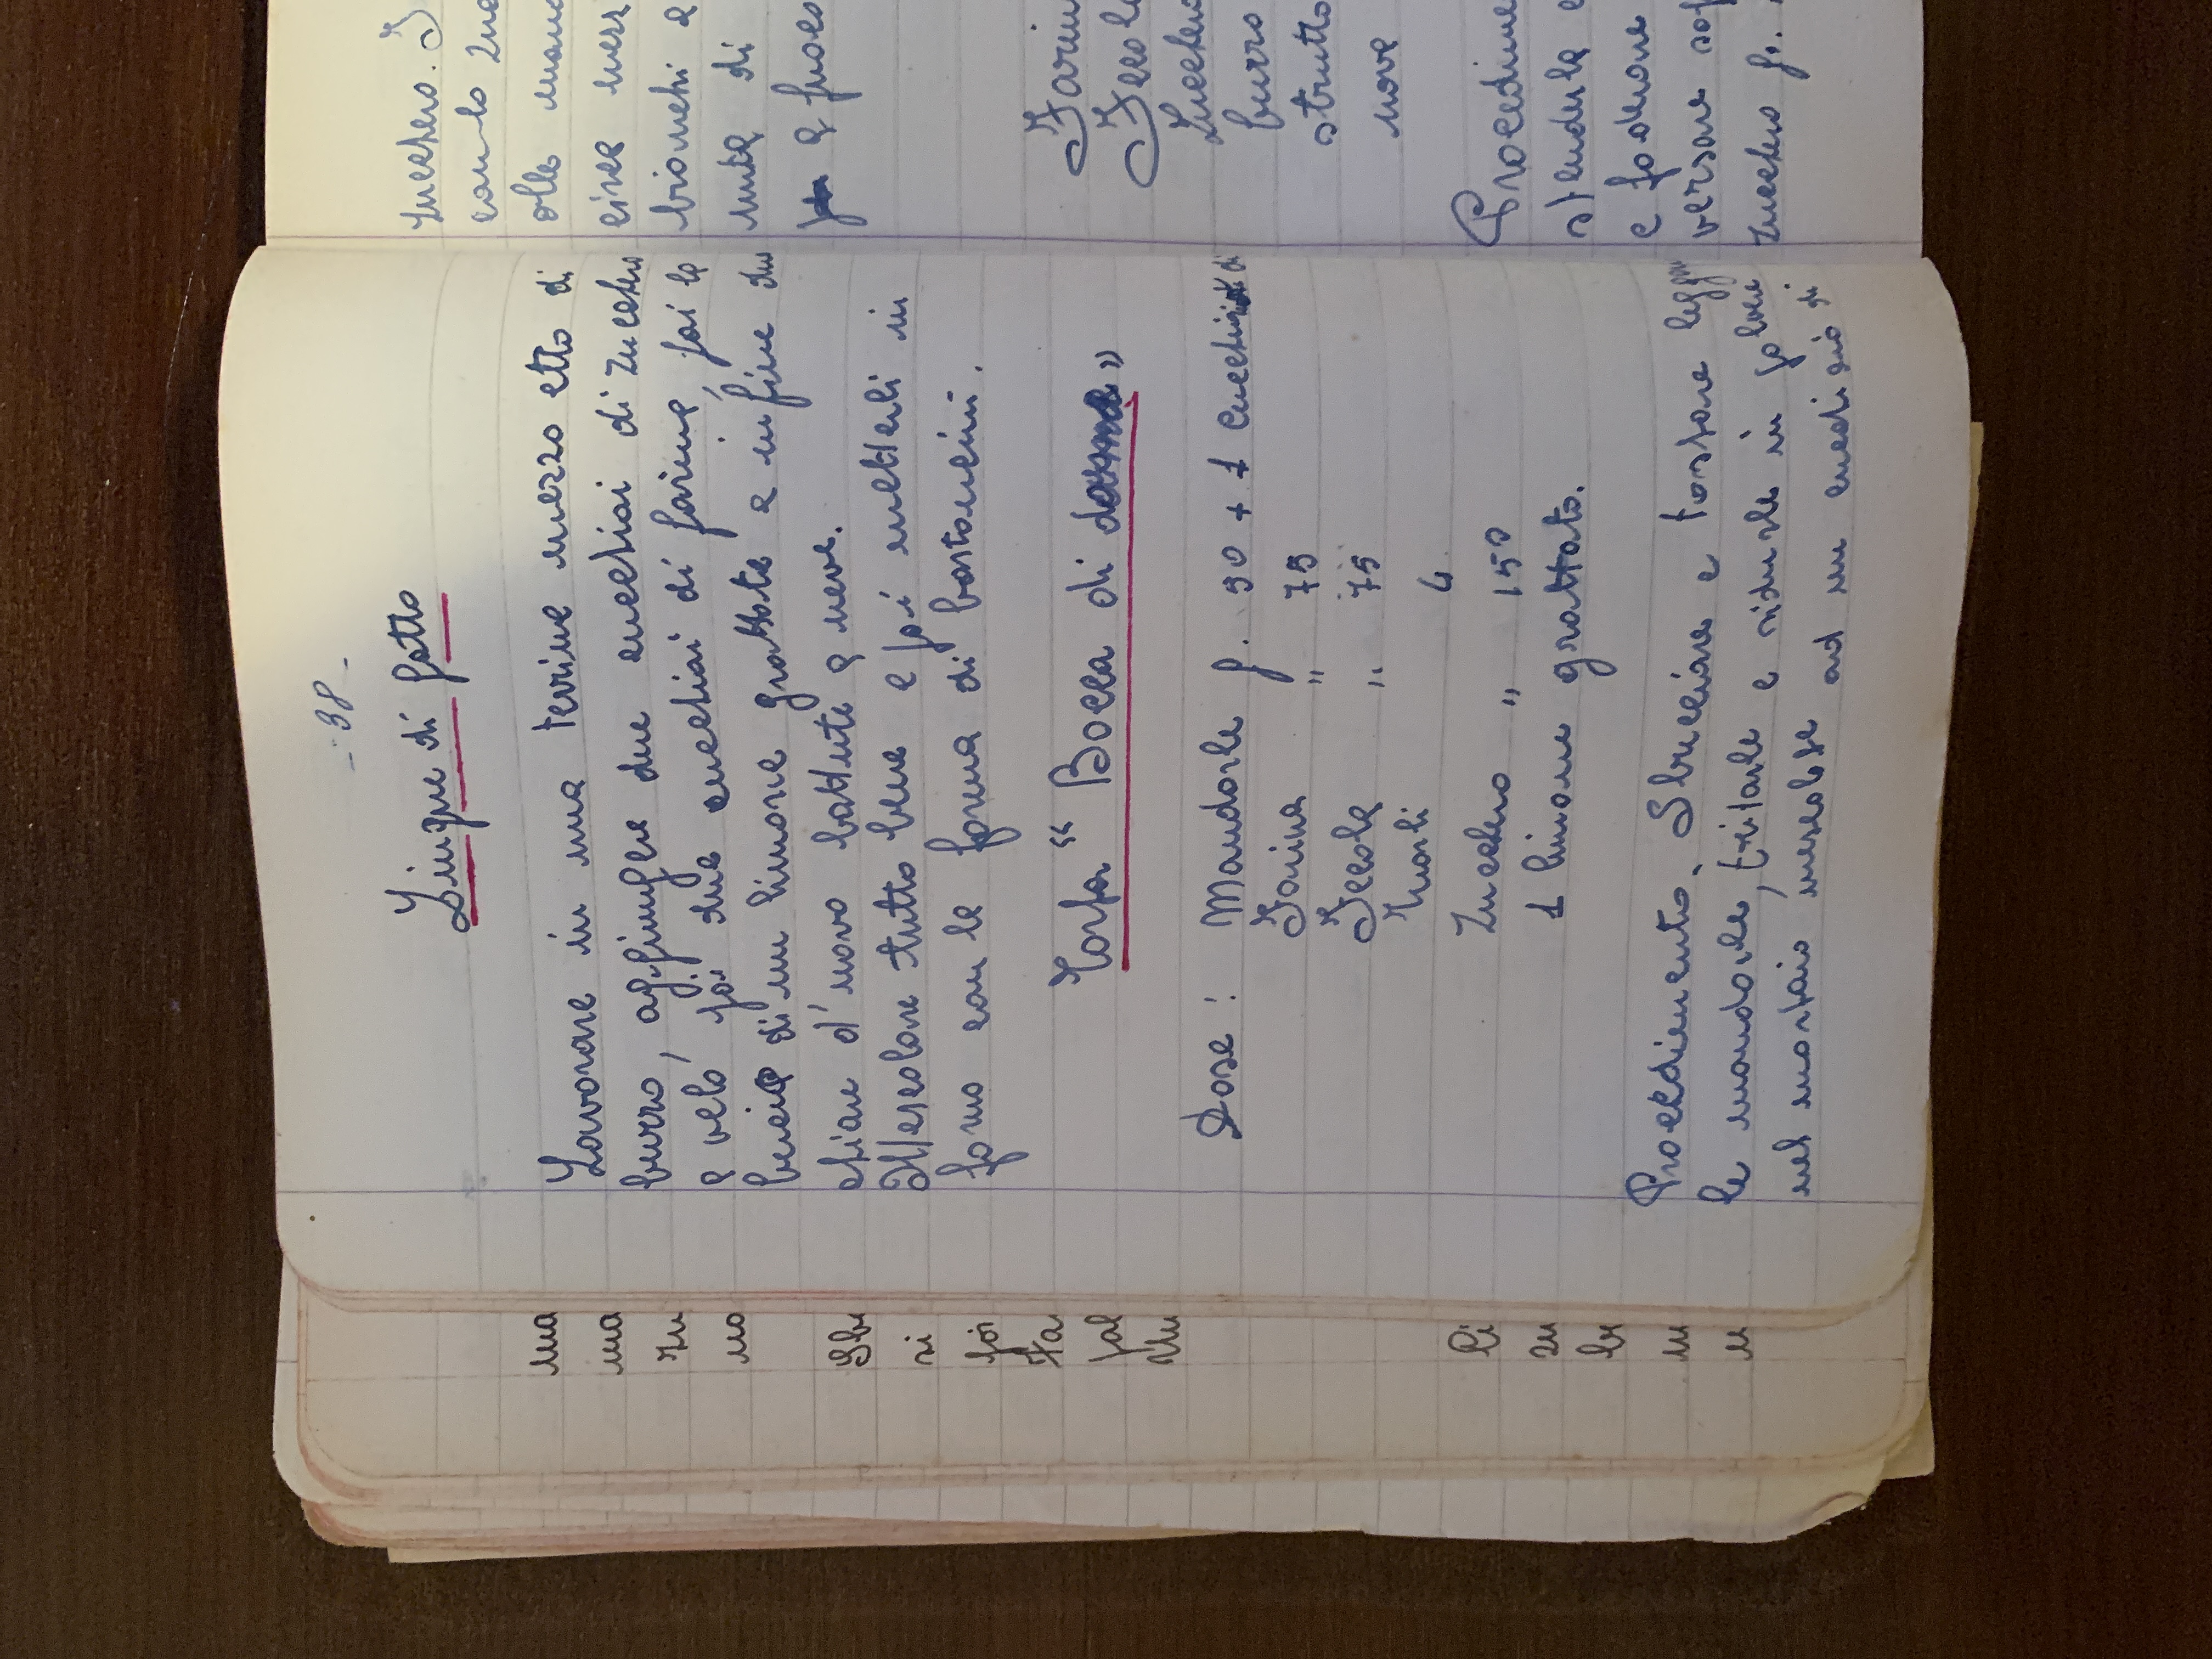 - 38 -
Lingue di gatto
Lavorare in una terrina mezzo etto di
burro, aggiungere due cucchiai di zucchero
a velo poi due cucchiai di farina, poi la
buccia di un limone grattata e infine due
chiare d'uovo battute a neve.
Mescolare tutto bene e poi metterli in
forno con la forma di bastoncini.
Torta "Bocca di dama"
Dose: Mandorle g. 90 + 1 cucchiaio di
Farina " 75
Fecola " 75
Tuorli 4
Zucchero " 150
1 limone grattato.
Procedimento. Sbucciare e tostare
le mandorle, tritarle e ridurle in polvere
nel mortaio mescolate ad un cucchiaio di
zucchero. I
con lo
alle
circa
bianchi e
di
a fuoco
Farin
Fecol
Zucchero
burro
strutto
uova
Procedime
stenderla
e foderare
versare
zucchero g.
ma
ma
zu
no
Sb
si
poi
Fa
Ci
zu